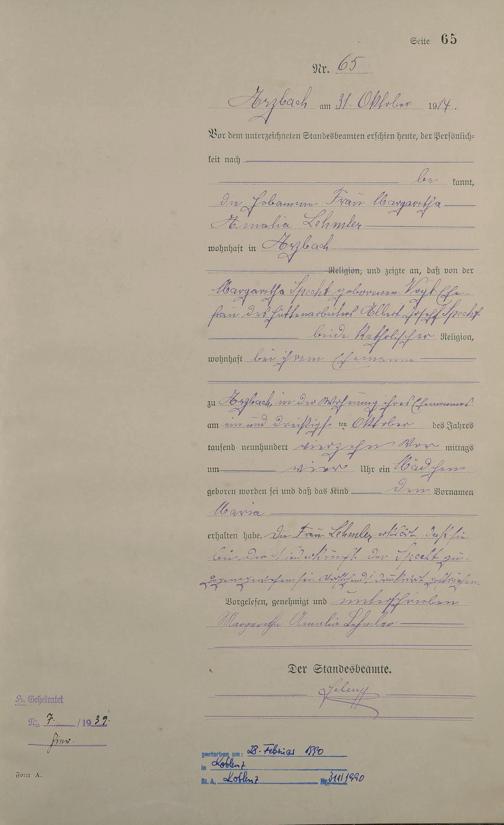 Seite 65
Nr. 65
Arzbach am 31. Oktober 1914.
Vor dem unterzeichneten Standesbeamten erschien heute, der Persönlich-
keit nach
be kannt,
die Hebamme Frau Margaretha
Amalia Lehmler
wohnhaft in Arzbach
Religion, und zeigte an, daß von der
Margaretha Specht geborenen Vogt Ehe-
frau des Hüttenarbeiters Albert Joseph Specht
beide katholischer Religion,
wohnhaft bei ihrem Ehemanne
zu Arzbach, in der Wohnung ihres Ehemannes
am ein und dreißigsten Oktober des Jahres
tausend neunhundert vierzehn Vor mittags
um vier Uhr ein Mädchen
geboren worden sei und daß das Kind den Vornamen
Maria
erhalten habe. Die Frau Lehmler erklärt, daß sie
bei der Niederkunft der Specht zu-
gegen gewesen sei.
Vorgelesen, genehmigt und unterschrieben
Margaretha Amalia Lehmler
Der Standesbeamte.
Geheiratet
Nr. 7 /1939
Form A.
gestorben am: 28. Februar 1990
in Koblenz
St. A. Koblenz Nr. 311/1990